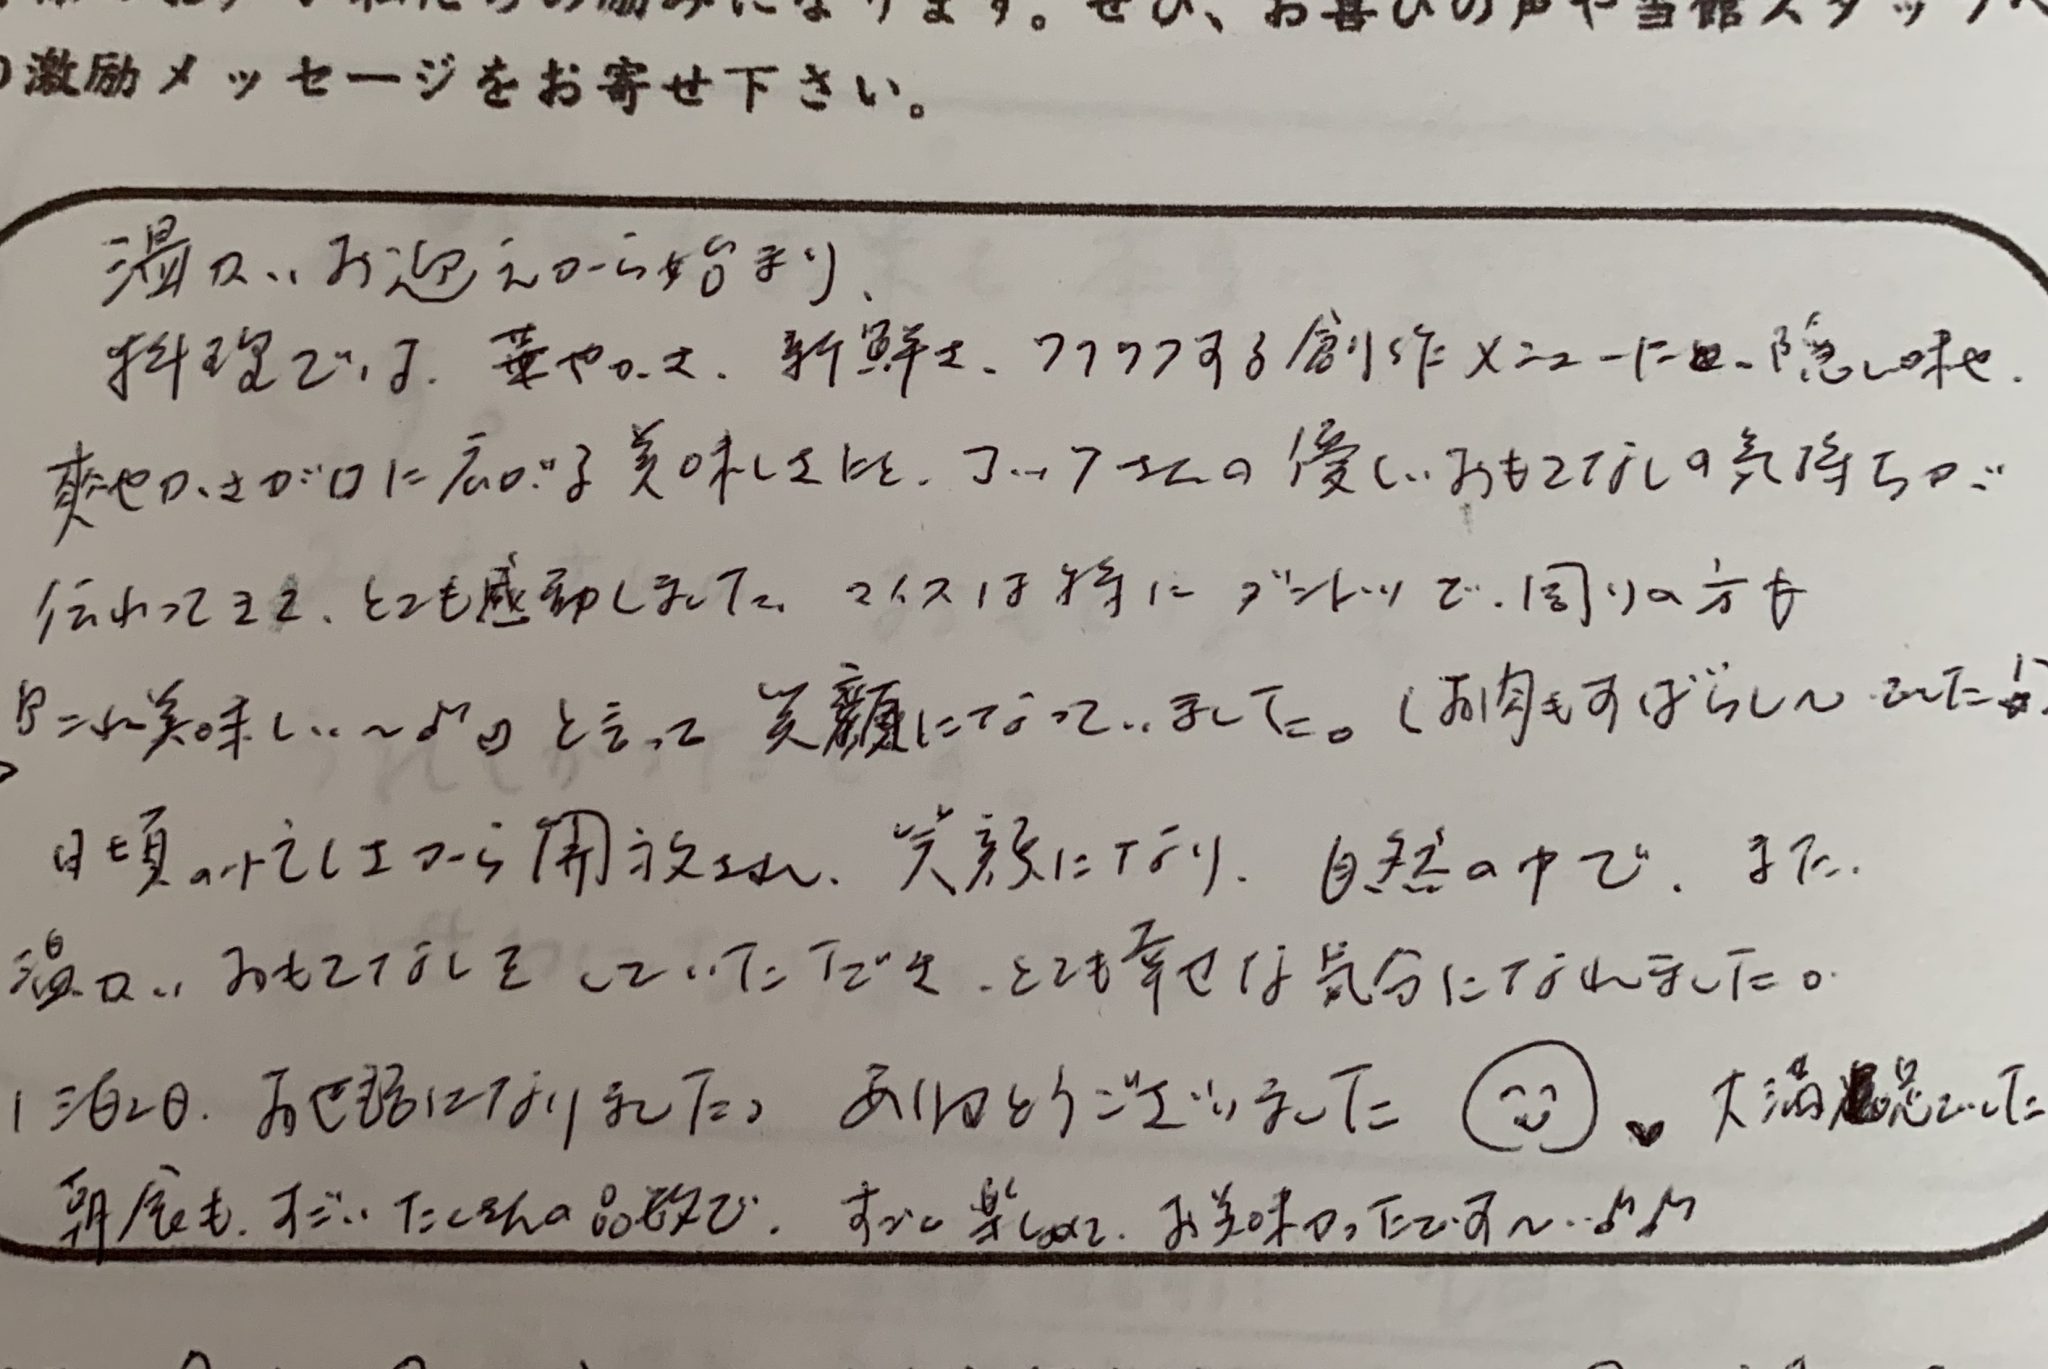 私たちの励みになります。ぜひ、お喜びの声や当館スタッフへ
の激励メッセージをお寄せ下さい。
温かいお迎えから始まり、
料理では、華やかさ、新鮮さ、ワクワクする創作メニューにと、隠し味や、
爽やかさが口に広がる美味しさにと、コックさんの優しいおもてなしの気持ちが
伝わってきて、とても感動しました。アイスは特にダントツで、周りの方も
『これ美味しい〜♪』と言って笑顔になっていました。(お肉もすばらしいでした
日頃の忙しさから開放され、笑顔になり、自然の中で、また、
温かいおもてなしをしていただき、とても幸せな気分になれました。
1泊2日、お世話になりました。ありがとうございました 大満足でした
朝食も、すごいたくさんの品数で、すごく楽しめて、お美味かったです〜♪♪